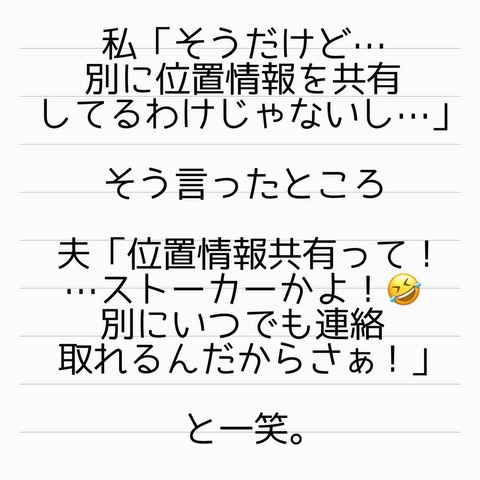 私「そうだけど…
別に位置情報を共有
してるわけじゃないし…」
そう言ったところ
夫「位置情報共有って！
…ストーカーかよ！🤣
別にいつでも連絡
取れるんだからさぁ！」
と一笑。